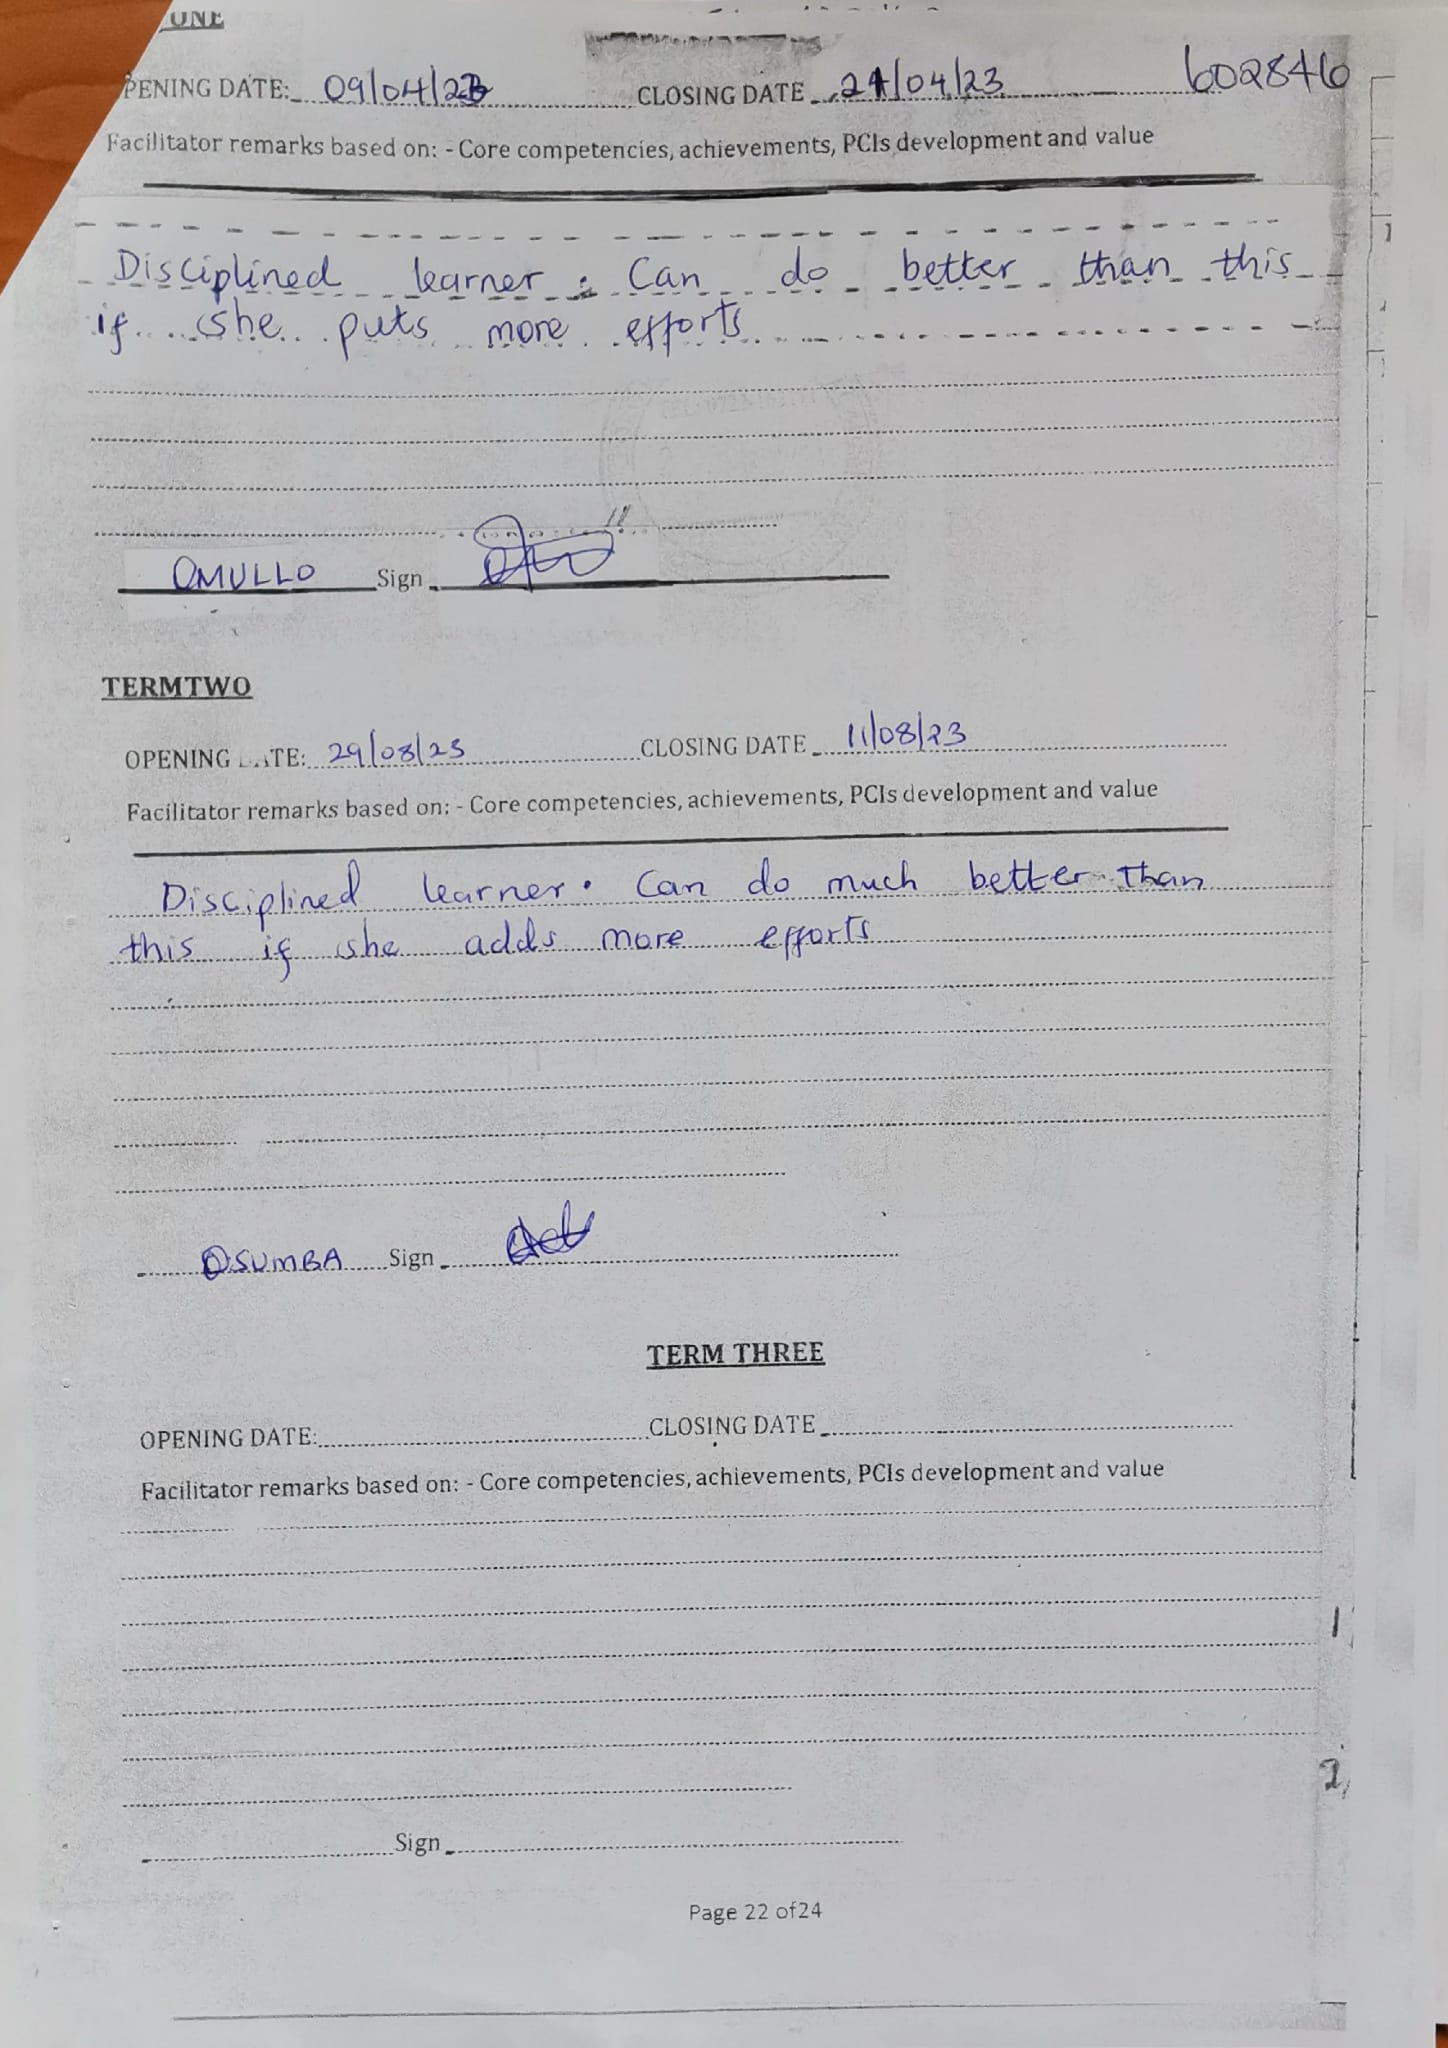 ONE
PENING DATE: 09/04/23 CLOSING DATE 21/04/23 602846
Facilitator remarks based on: - Core competencies, achievements, PCIs development and value
Disciplined learner. Can do better than this
if she puts more efforts
OMULLO Sign
TERMTWO
OPENING DATE: 29/08/23 CLOSING DATE 11/08/23
Facilitator remarks based on: - Core competencies, achievements, PCIs development and value
Disciplined learner. Can do much better than
this if she adds more efforts
OSUMBA Sign
TERM THREE
OPENING DATE: CLOSING DATE
Facilitator remarks based on: - Core competencies, achievements, PCIs development and value
1
2
Sign
Page 22 of24